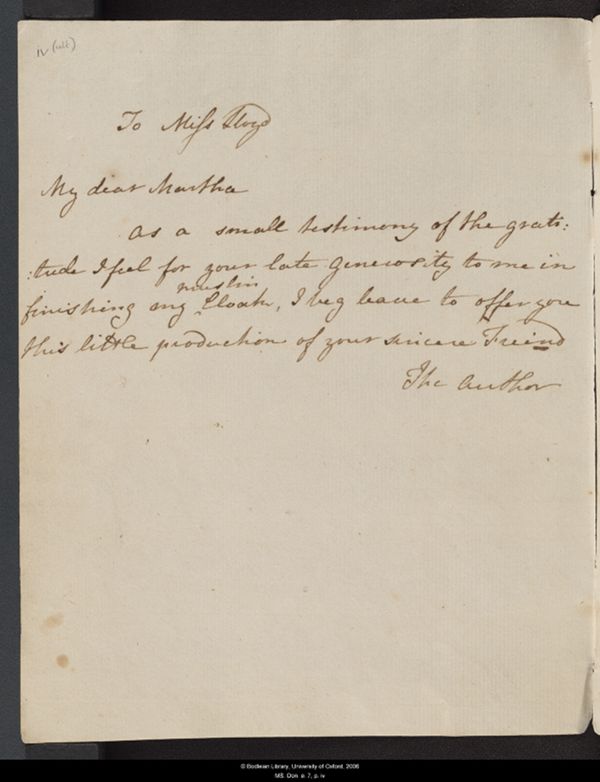 iv (ult)
To Miss Lloyd
My dear Martha
As a small testimony of the grati:
:tude I feel for your late generosity to me in
muslin
finishing my ^ Cloak, I beg leave to offer you
this little production of your sincere Freind
The Author
© Bodleian Library, University of Oxford, 2006
MS. Don. e. 7, p. iv